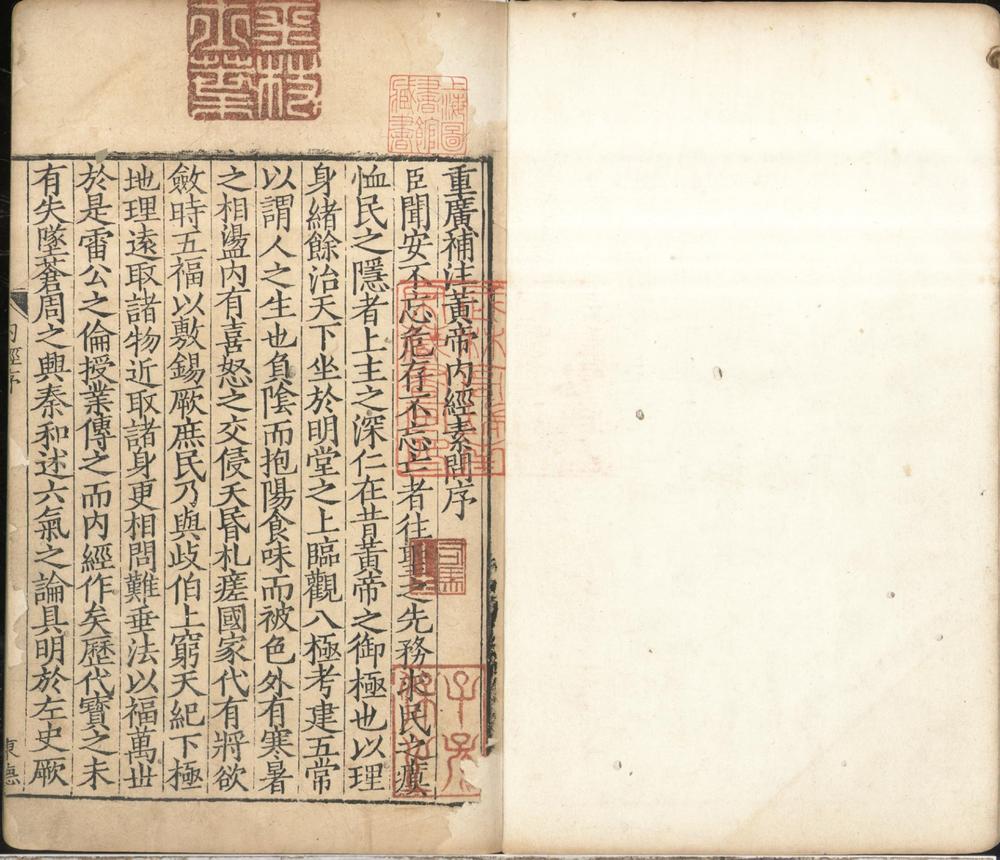 重廣補注黃帝內經素問序
臣聞安不忘危存不忘亡者往聖之先務求民之瘼
恤民之隱者上主之深仁在昔黃帝之御極也以理
身緒餘治天下坐於明堂之上臨觀八極考建五常
以謂人之生也負陰而抱陽食味而被色外有寒暑
之相盪內有喜怒之交侵夭昏札瘥國家代有將欲
斂時五福以敷錫厥庶民乃與歧伯上窮天紀下極
地理遠取諸物近取諸身更相問難垂法以福萬世
於是雷公之倫授業傳之而內經作矣歷代寶之未
有失墜蒼周之興秦和述六氣之論具明於左史厥
內經序
上海圖書館藏書